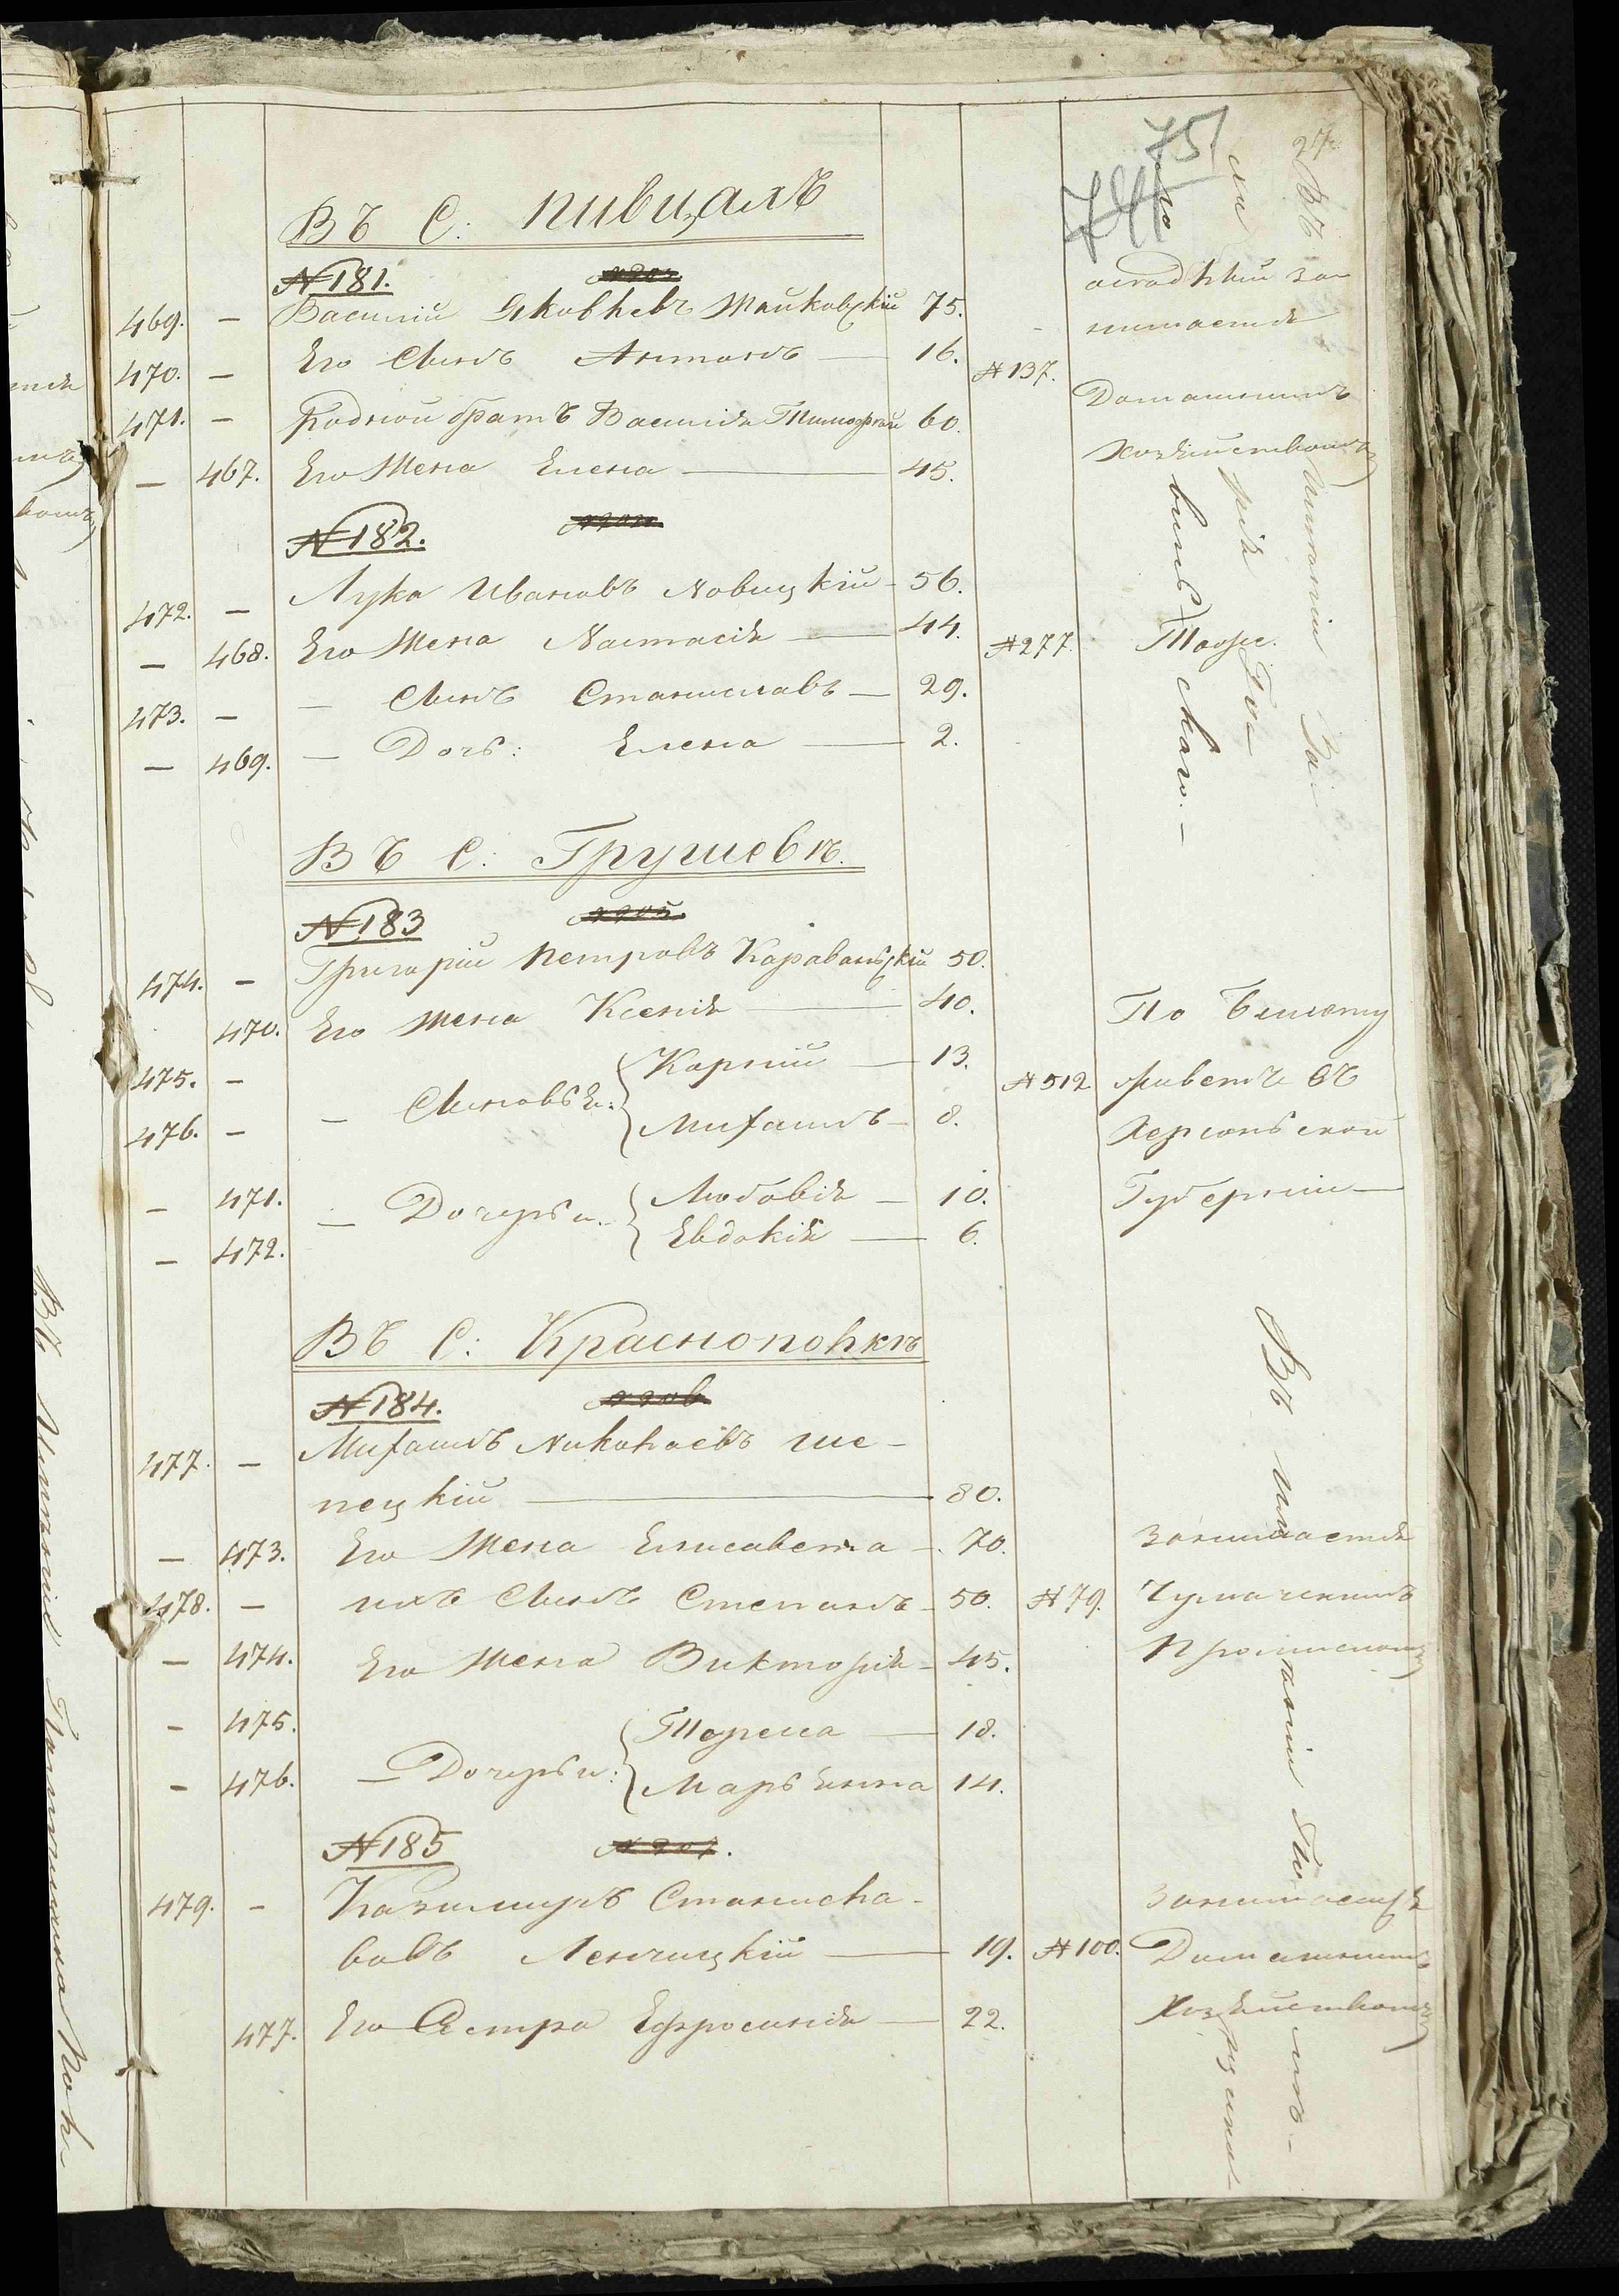 75
74
Въ С: Пивцахъ
№181.
469. — Василій Яковлевъ Жайковскій 75.
оседлый за-
нимается
470. — Его Сынъ Антонъ — 16. №137.
Домашнимъ
471. — Родной братъ Василія Тимофей 60.
Хозяйствомъ
— 467. Его Жена Елена — 45.
№182.
472. — Лука Ивановъ Новицкій - 56.
— 468. Его Жена Настасія — 44. №277. Тоже.
473. — — Сынъ Станиславъ — 29.
— 469. — Дочь: Елена — 2.
Въ С: Грушевкѣ.
№183
474. — Григорій Петровъ Караванскій 50.
470. Его жена Ксенія — 40.
По билету
475. — — Сыновья: Карпій — 13. №512 живетъ въ
476. — Михаилъ — 8. Херсонской
— 471. — Дочери: Любовія — 10. Губерніи —
— 472. Евдокія — 6.
Въ С: Краснополкѣ
№184.
477. — Михаилъ Николаевъ Ше-
пецкій — 80.
— 473. Его Жена Елисавета — 70. занимается
478. — ихъ Сынъ Степанъ — 50. №79. Чумачскимъ
— 474. Его Жена Викторія — 45. Промысломъ
— 475. — Дочери: Тереса — 18.
— 476. Марьянна 14.
№185
№207.
479. — Казимиръ Станисла-
вовъ Ленчицкій — 19. №100. Занимается
Домашнимъ
477. Его Сестра Ефросинія — 22. Хозяйствомъ
Въ имѣніи